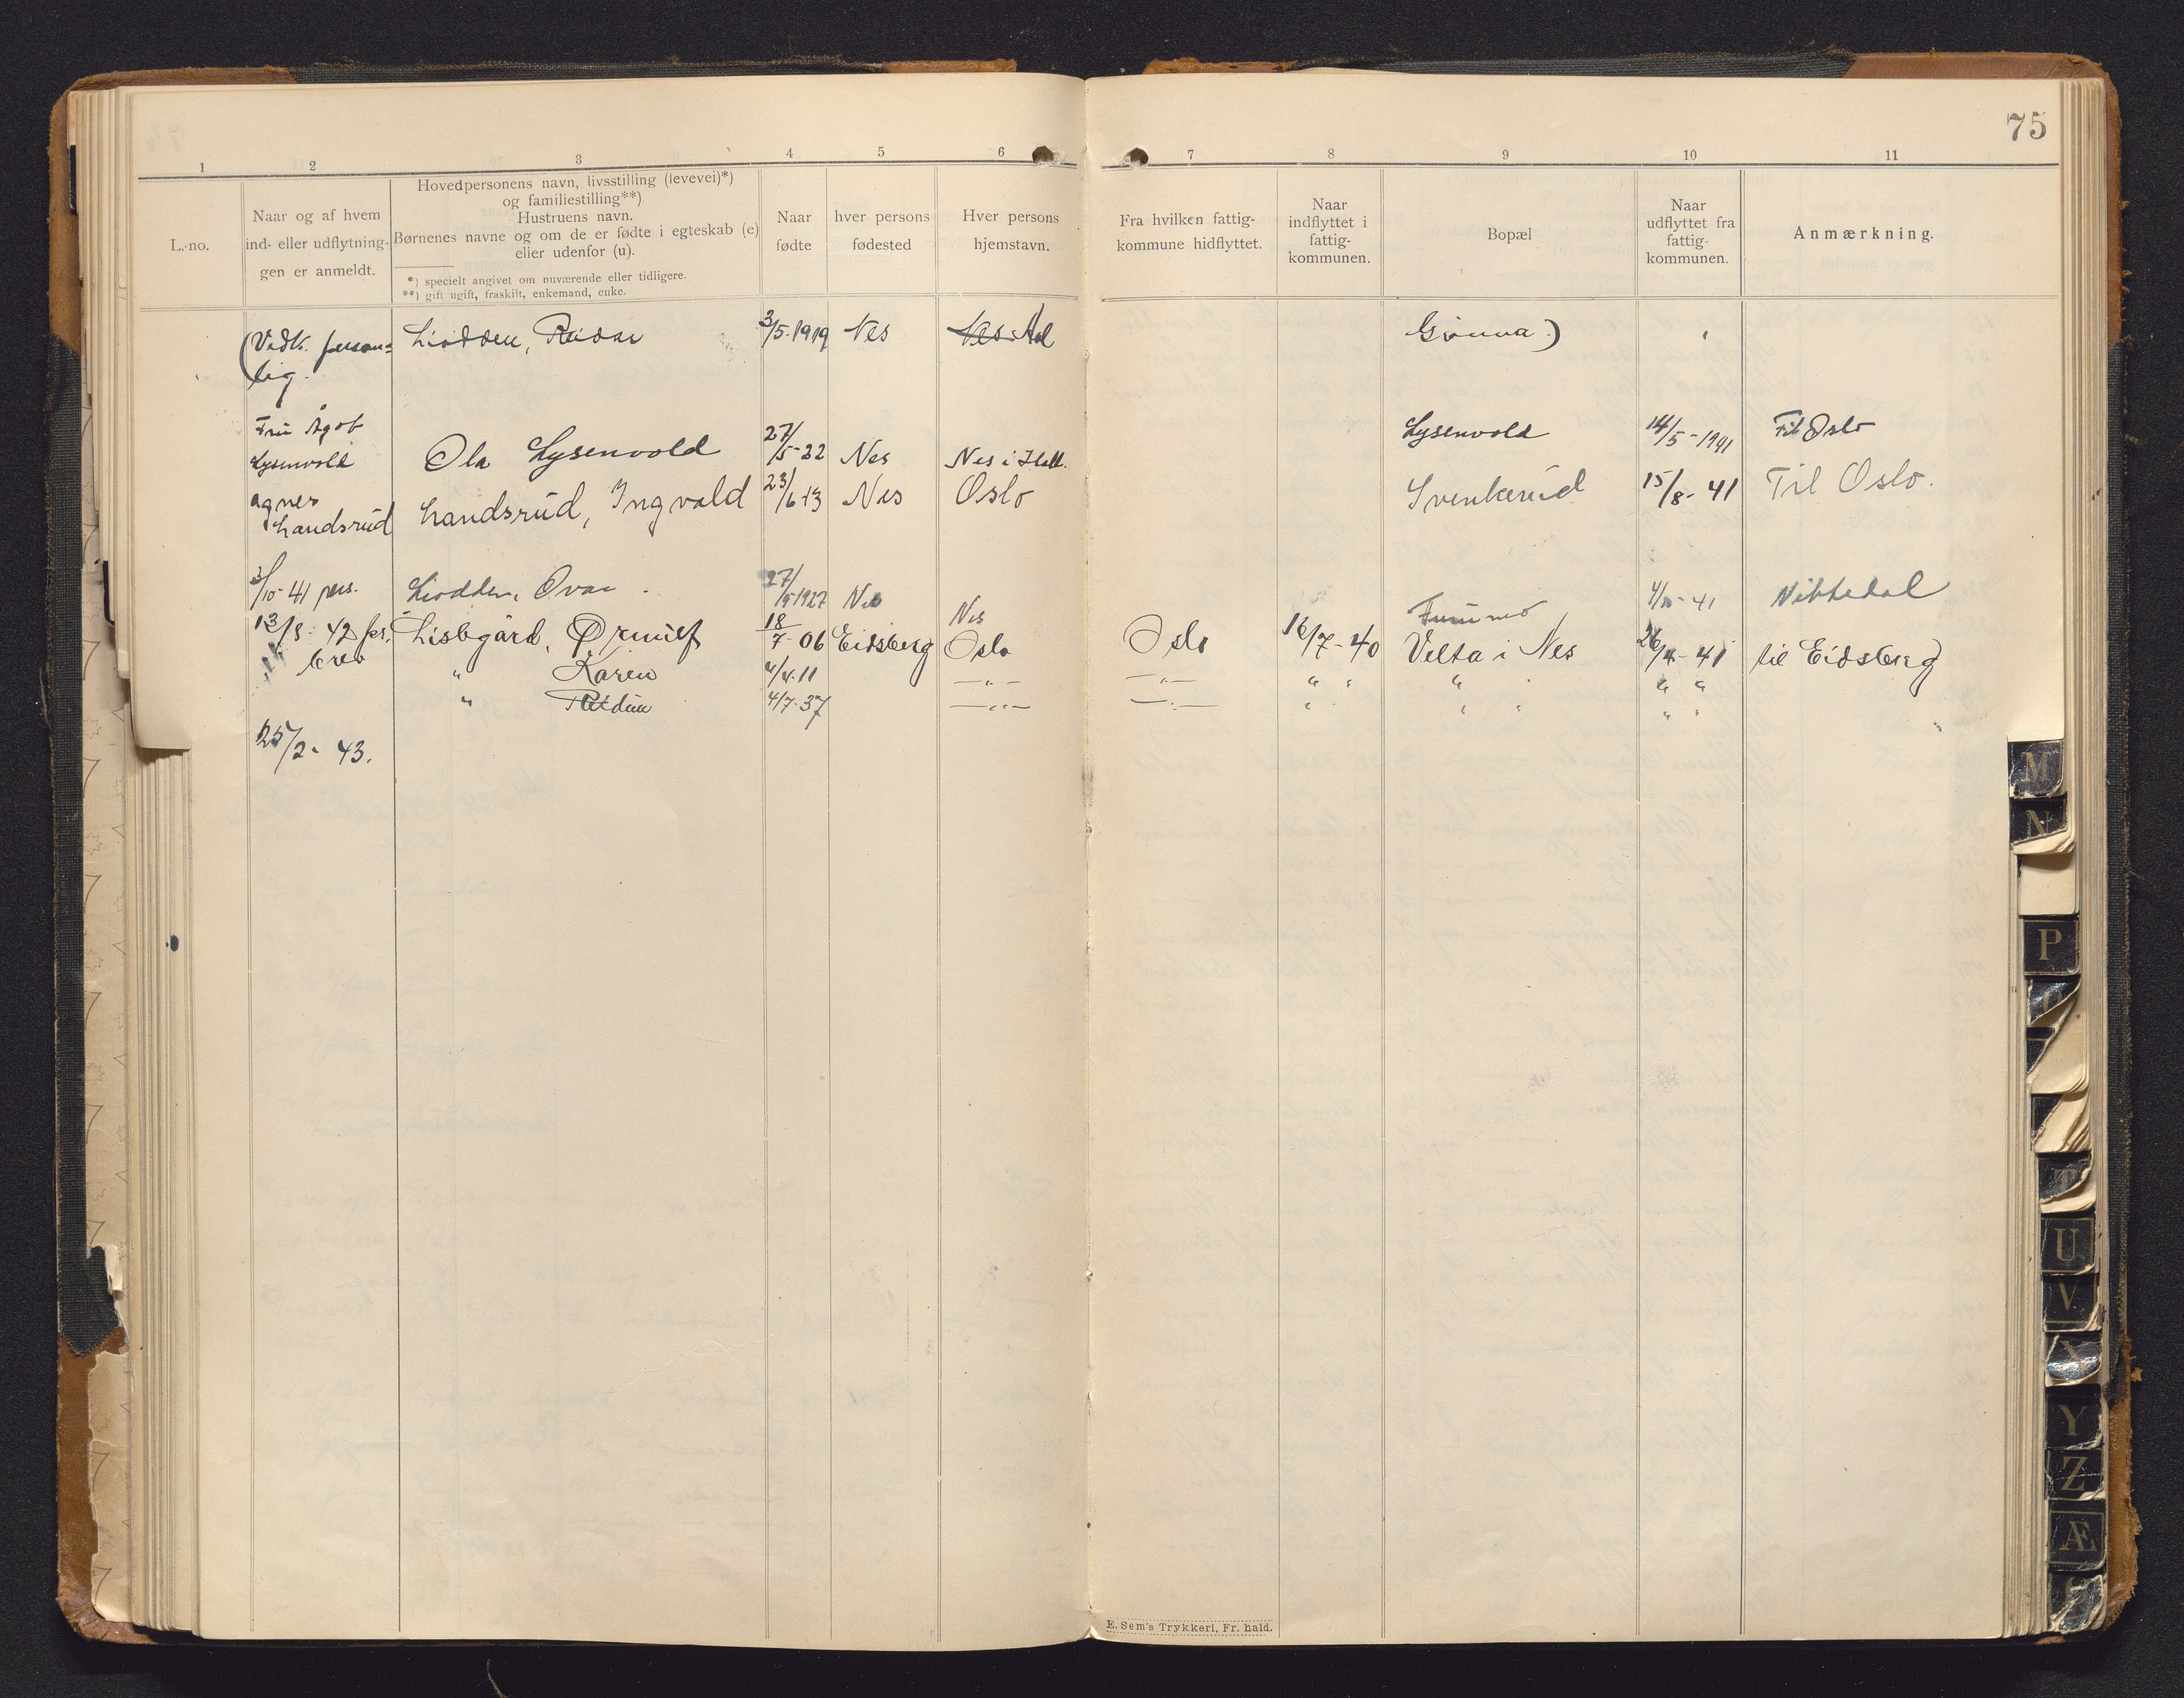 75
1 2 3 4 5 6 7 8 9 10 11
L.-no.
Naar og af hvem
ind- eller udflytnin-
gen er anmeldt.
Hovedpersonens navn, livsstilling (levevei)*)
og familiestilling**)
Hustruens navn.
Børnenes navne og om de er fødte i egteskab (e)
eller udenfor (u).
*) specielt angivet om nuværende eller tidligere.
**) gift ugift, fraskilt, enkemand, enke.
Naar
fødte
hver persons
fødested
Hver persons
hjemstavn.
Fra hvilken fattig-
kommune hidflyttet.
Naar
indflyttet i
fattig-
kommunen.
Bopæl
Naar
udflyttet fra
fattig-
kommunen.
Anmærkning.
(Vedk. person= Liodden, Reidar 3/5-1919 Nes Nes Aal
lig.
Fru Ågot
Lysenvold Ola Lysenvold 27/5-22 Nes Nes i Hall. Lysenvold 14/5-1941 Til Oslo
Agnes
Landsrud Landsrud, Ingvald 23/6-13 Nes Oslo Svenkerud 15/8-41 Til Oslo.
3/10-41 pers. Liodden, Ovar 1927 Nes Nes Furumo 4/10-41 Nittedal
13/8-42 per. brev Lislegård, Ørnulf 18/7-06 Eidsberg Oslo Oslo 16/7-40 Velta i Nes 41 til Eidsberg
" Karen 4/4.11 —"— —"— " " " " "
" Reidun 4/7-37 —"— —"— " " " " "
25/2-43.
M
N
P
T
U
V
X
Y
Z
Æ
E. Sem's Trykkeri, Fr. hald.